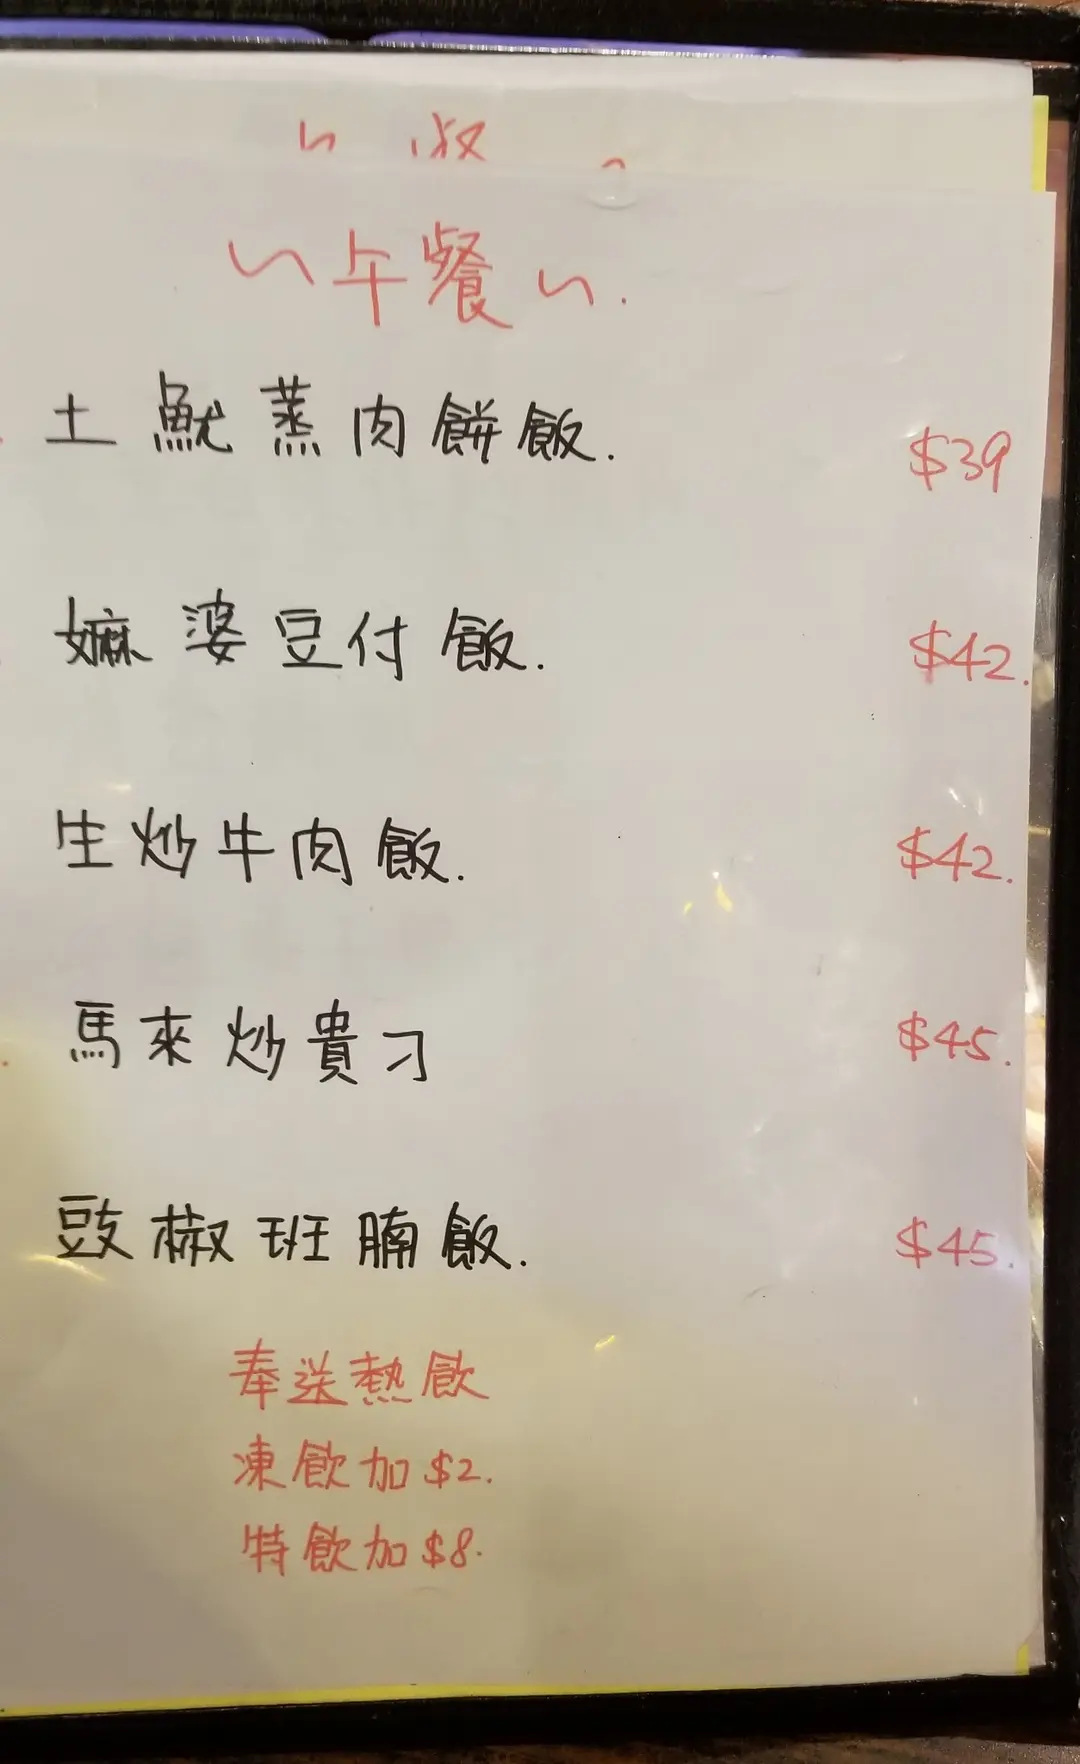 午餐
土魷蒸肉餅飯. $39
嫲婆豆付飯. $42.
生炒牛肉飯. $42.
馬來炒貴刁 $45.
豉椒班腩飯. $45.
奉送熱飲
凍飲加$2.
特飲加$8.